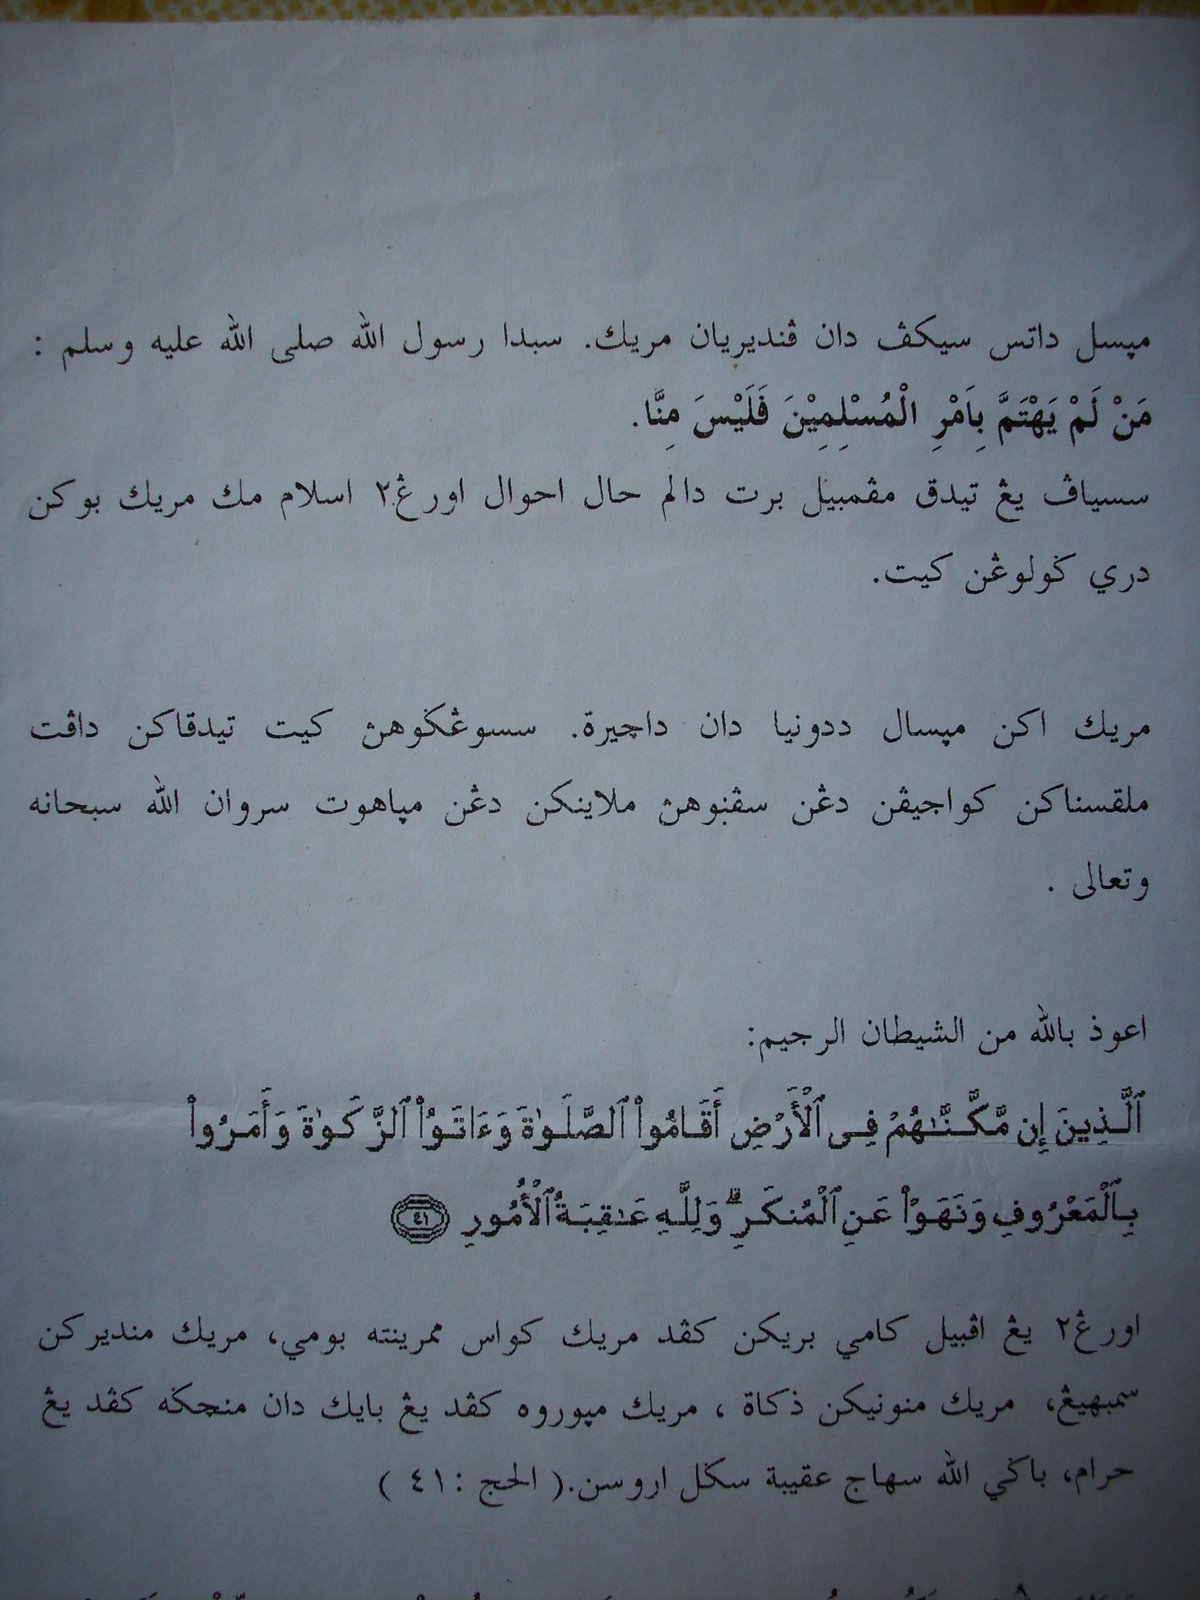 مڽسل داتس سيكڤ دان ڤنديريان مريك. سبدا رسول الله صلى الله عليه وسلم :
مَنْ لَمْ يَهْتَمَّ بِاَمْرِ الْمُسْلِمِيْنَ فَلَيْسَ مِنَّا.
سسياڤ يڠ تيدق مڠمبيل برت دالم حال احوال اورڠ٢ اسلام مك مريك بوكن
دري ݢولوڠن كيت.
مريك اكن مڽسال ددونيا دان داخيرة. سسوڠݢوهڽ كيت تيدقاكن داڤت
ملقسناكن كواجيڤن دڠن سڤنوهڽ ملاينكن دڠن مڽاهوت سروان الله سبحانه
وتعالى .
اعوذ بالله من الشيطان الرجيم:
ٱلَّذِينَ إِن مَّكَّنَّٰهُمْ فِى ٱلْأَرْضِ أَقَامُوا۟ ٱلصَّلَوٰةَ وَءَاتَوُا۟ ٱلزَّكَوٰةَ وَأَمَرُوا۟
بِٱلْمَعْرُوفِ وَنَهَوْا۟ عَنِ ٱلْمُنكَرِ ۗ وَلِلَّهِ عَٰقِبَةُ ٱلْأُمُورِ ٤١
اورڠ٢ يڠ اڤبيل كامي بريكن كڤد مريك كواس ممرينته بومي، مريك منديركن
سمبهيڠ، مريك منونيكن ذكاة ، مريك مڽوروه كڤد يڠ بايك دان منچݢه كڤد يڠ
حرام، باݢي الله سهاج عقيبة سݢل اروسن.( الحج :٤١ )